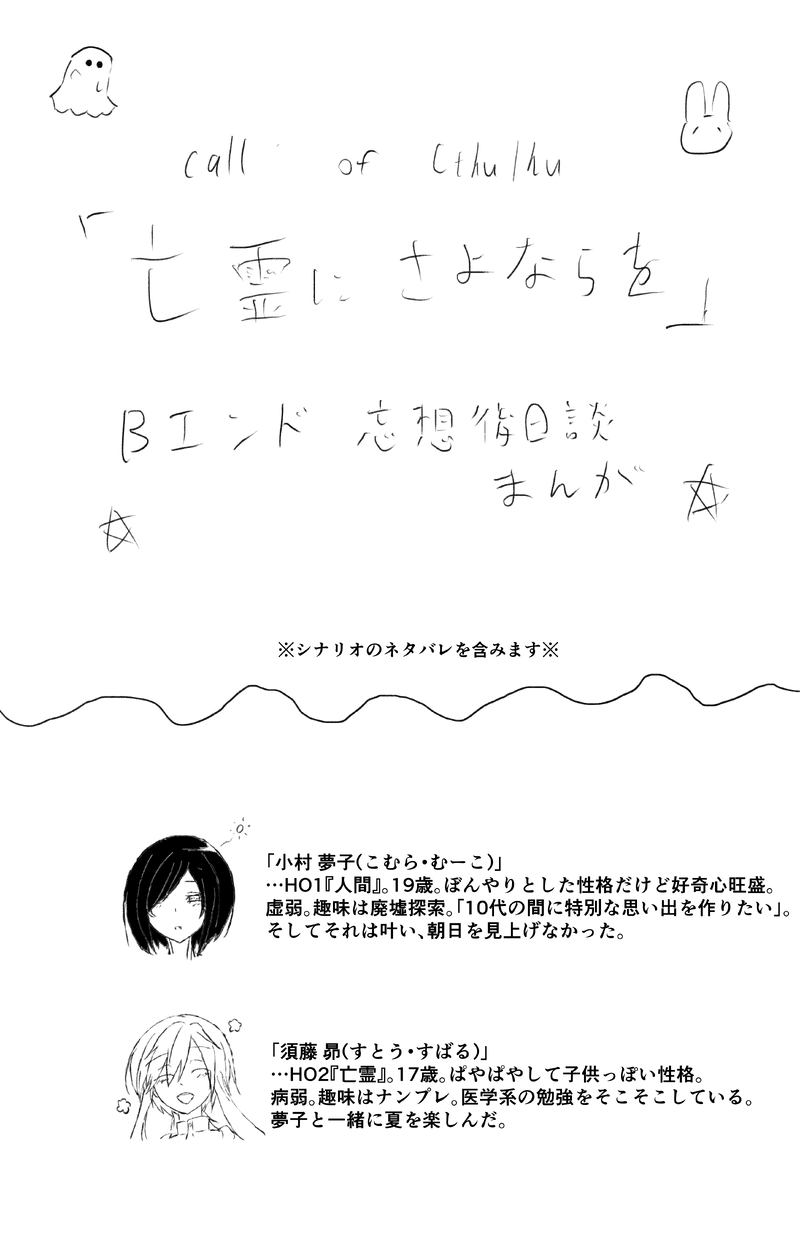 call of Cthulhu
「亡霊にさよならを」
Bエンド 忘想後日談
まんが
※シナリオのネタバレを含みます※
「小村 夢子(こむら・むーこ)」
…HO1『人間』。19歳。ぼんやりとした性格だけど好奇心旺盛。
虚弱。趣味は廃墟探索。「10代の間に特別な思い出を作りたい」。
そしてそれは叶い、朝日を見上げなかった。
「須藤 昴(すとう・すばる)」
…HO2『亡霊』。17歳。ぱやぱやして子供っぽい性格。
病弱。趣味はナンプレ。医学系の勉強をそこそこしている。
夢子と一緒に夏を楽しんだ。